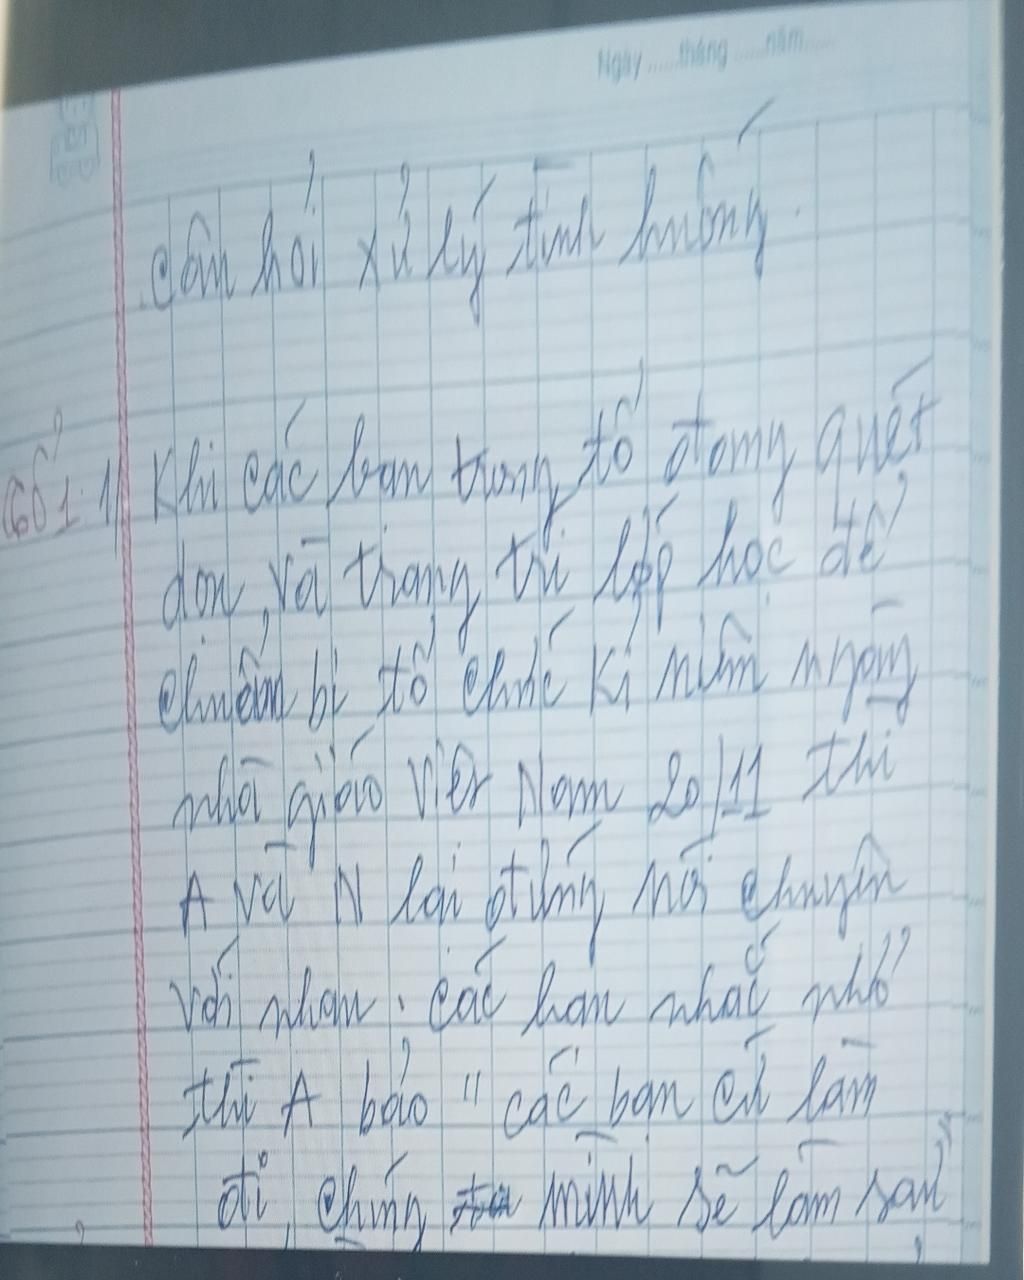 Ngày ......tháng ......năm......
Câu hỏi xử lý tình huống.
Tổ 1. 1) Khi các bạn trong tổ đang quét
dọn, và trang trí lớp học để
chuẩn bị tổ chức kỉ niệm ngày
nhà giáo Việt Nam 20/11 thì
A và N lại đứng nói chuyện
với nhau. Các bạn nhắc nhở
thì A bảo "các bạn cứ làm
đi, chúng mình sẽ làm sau"